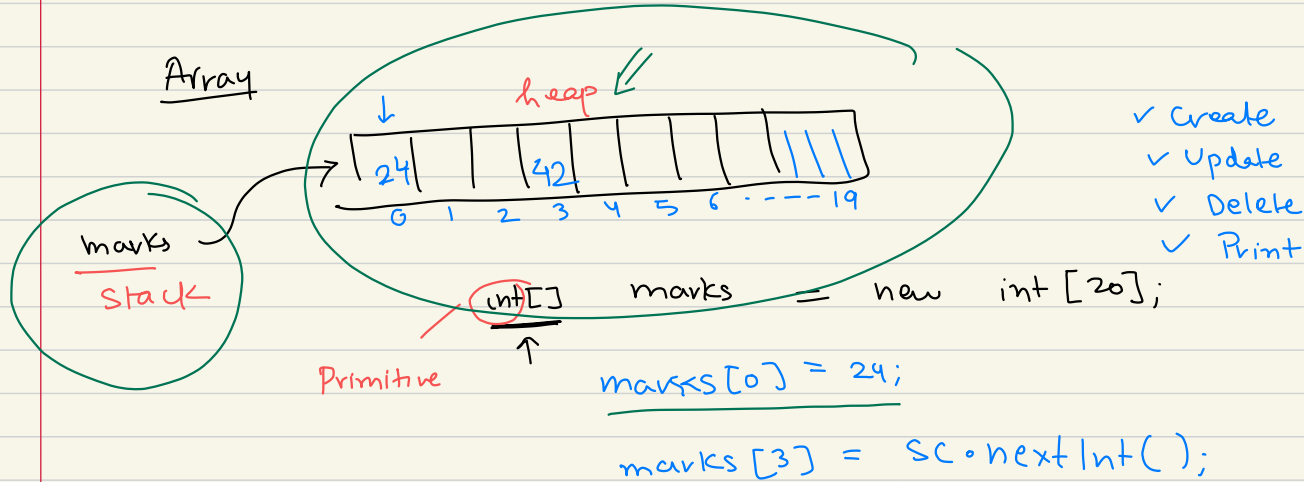 Array
heap
24 42
0 1 2 3 4 5 6 ----- 19
✓ Create
✓ Update
✓ Delete
✓ Print
marks
Stack
int[] marks = new int [20];
Primitive
marks[0] = 24;
marks [3] = sc.nextInt();